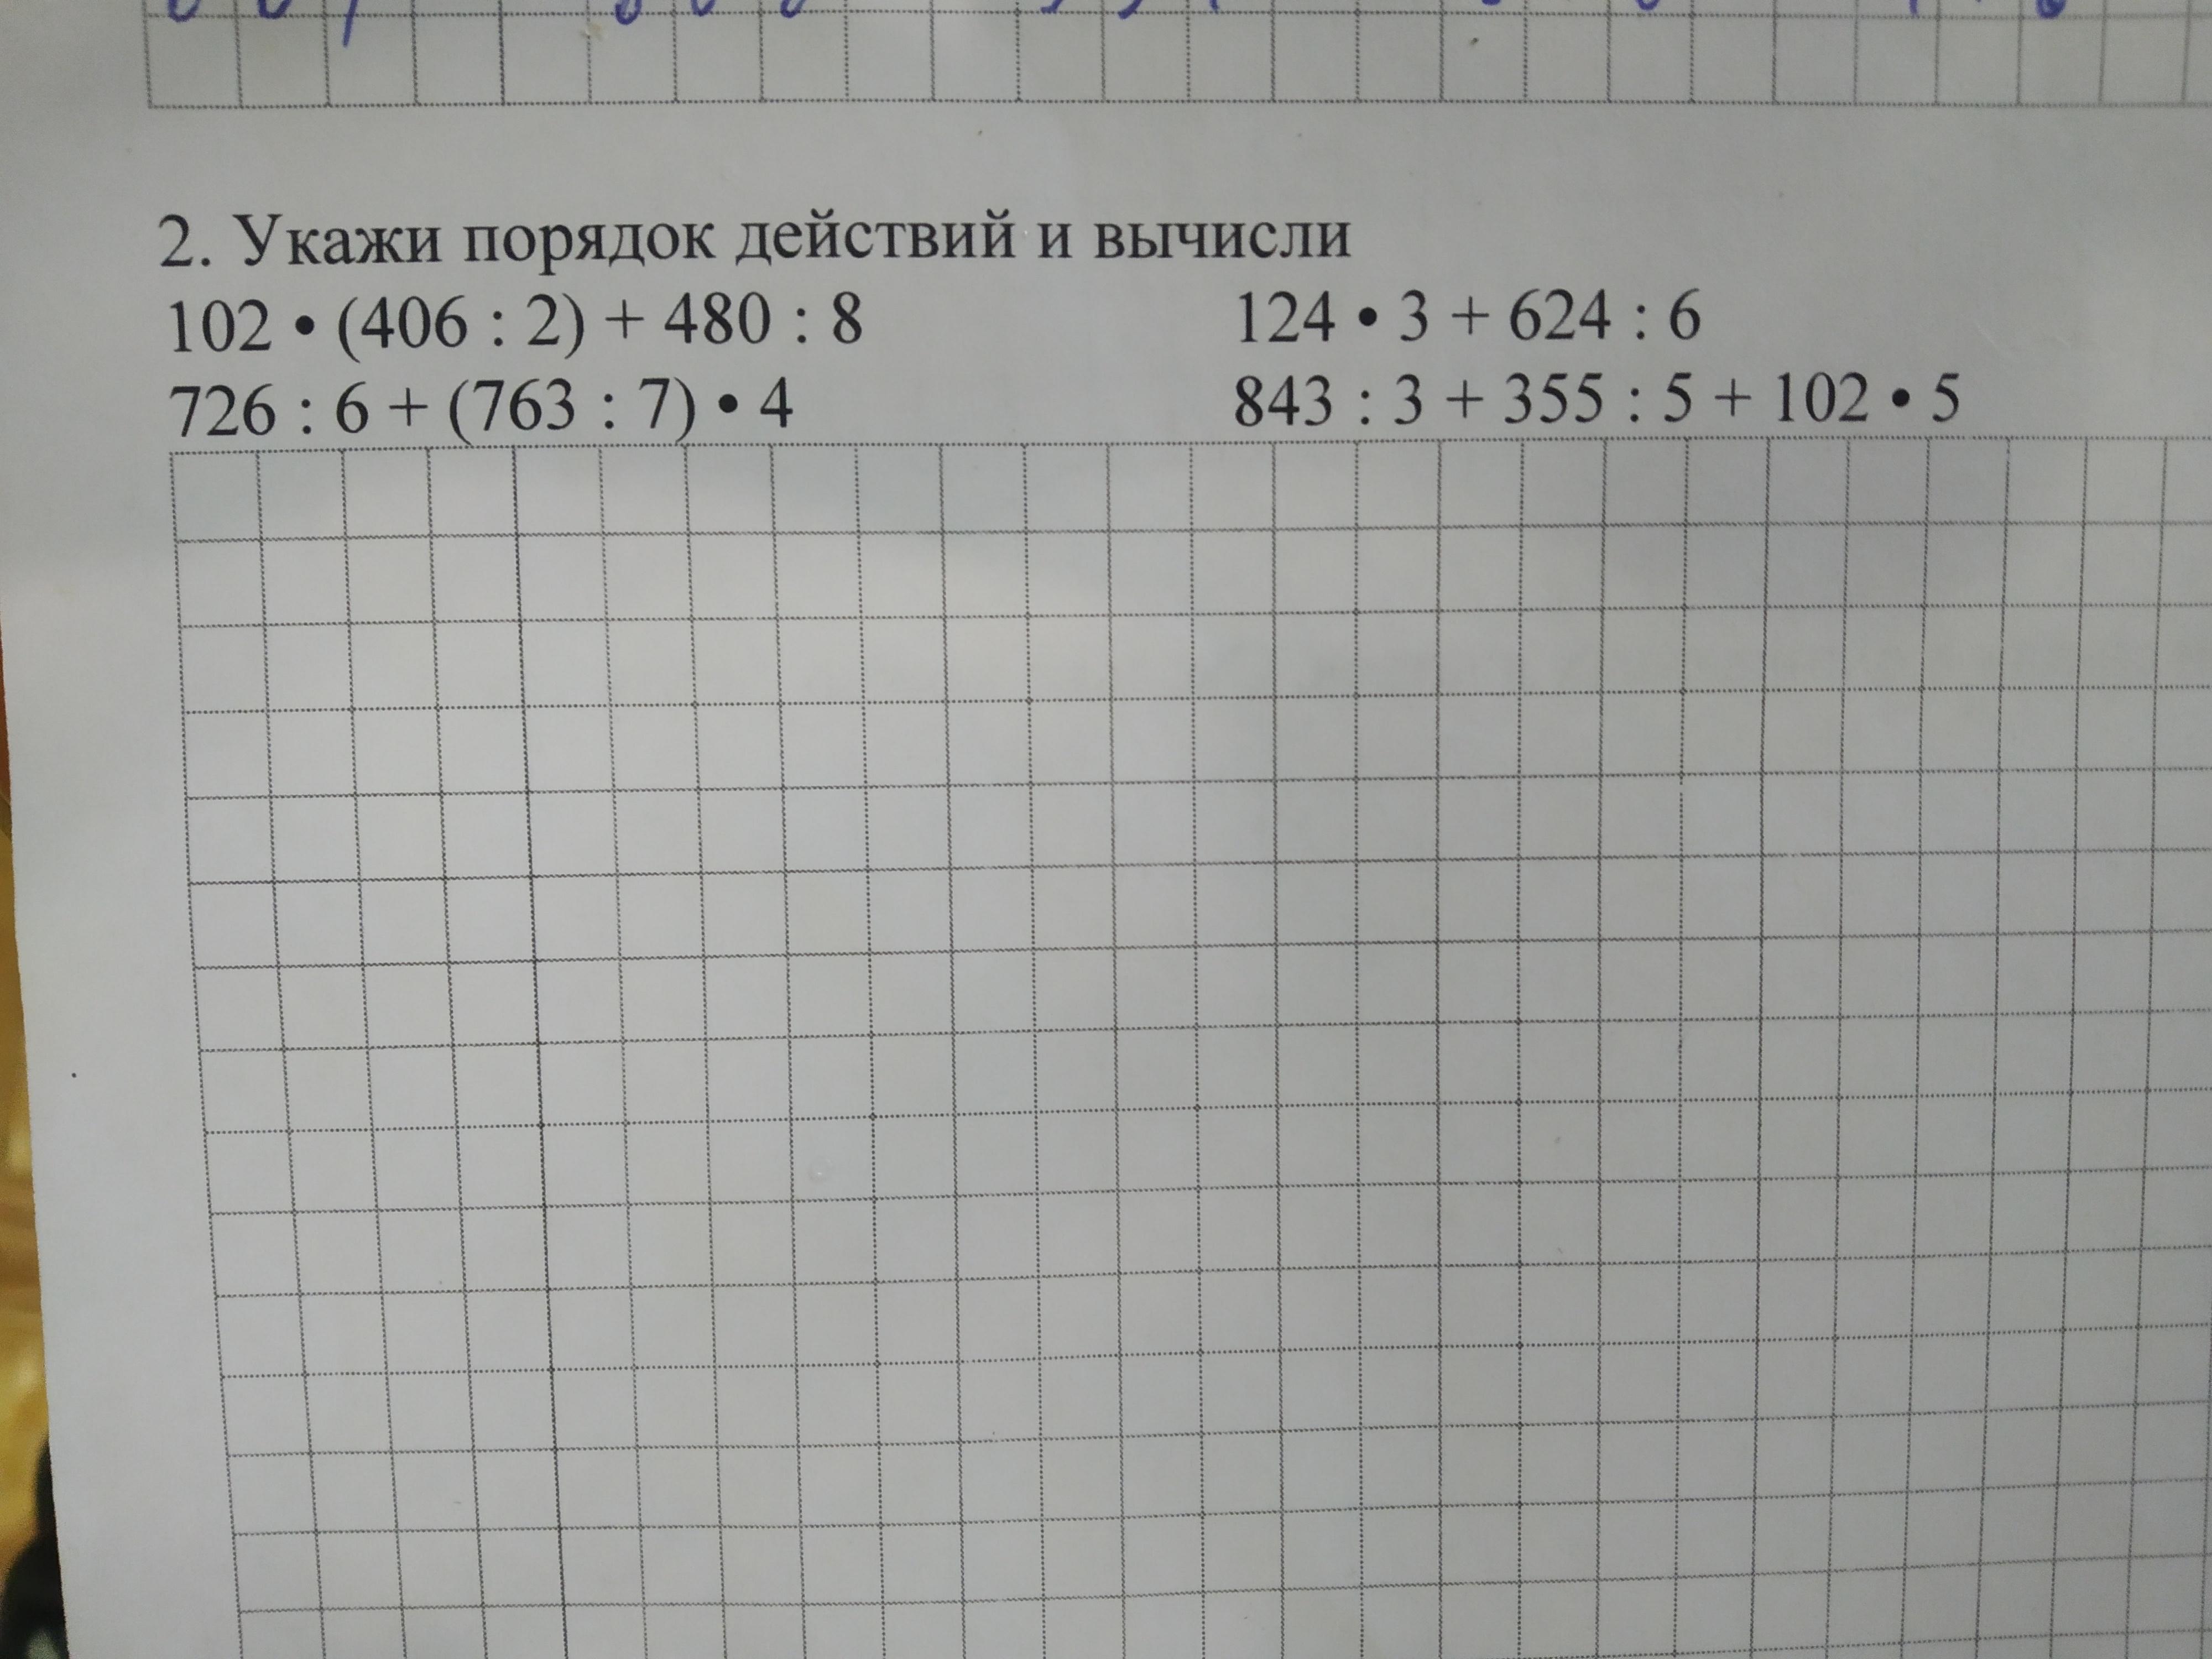 2. Укажи порядок действий и вычисли
102 • (406 : 2) + 480 : 8
124 • 3 + 624 : 6
726 : 6 + (763 : 7) • 4
843 : 3 + 355 : 5 + 102 • 5